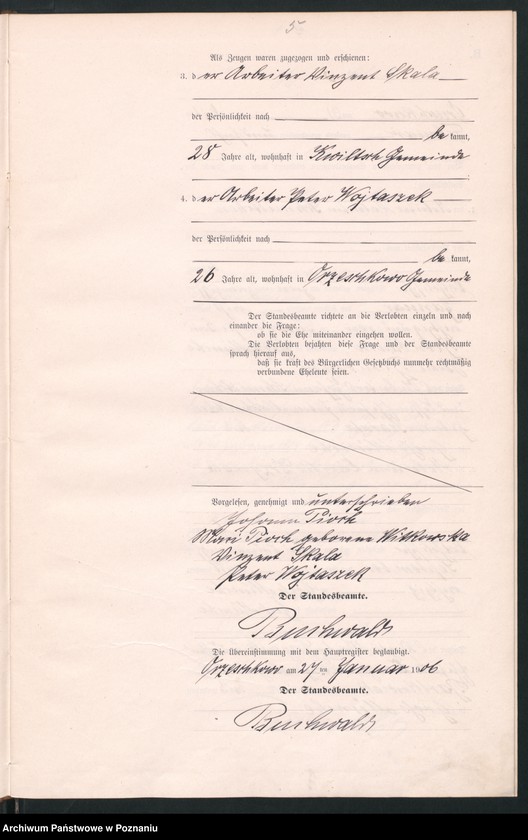 5
Als Zeugen waren zugezogen und erschienen:
3. der Arbeiter Vinzent Skala
der Persönlichkeit nach
be kannt,
28 Jahre alt, wohnhaft in Kwiltsch Gemeinde
4. der Arbeiter Peter Wojtaszek
der Persönlichkeit nach
be kannt,
26 Jahre alt, wohnhaft in Orzeschkowo Gemeinde
Der Standesbeamte richtete an die Verlobten einzeln und nach
einander die Frage:
ob sie die Ehe miteinander eingehen wollen.
Die Verlobten bejahten diese Frage und der Standesbeamte
sprach hierauf aus,
daß sie kraft des Bürgerlichen Gesetzbuchs nunmehr rechtmäßig
verbundene Eheleute seien.
Vorgelesen, genehmigt und unterschrieben
Johann
Mari geborene Witkowska
Vinzent Skala
Peter Wojtaszek
Der Standesbeamte.
Buchwald
Die Übereinstimmung mit dem Hauptregister beglaubigt.
Orzeschkowo am 27 ten Januar 1906
Der Standesbeamte.
Buchwald
Archiwum Państwowe w Poznaniu